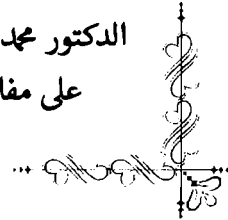 الدكتور محمد
على